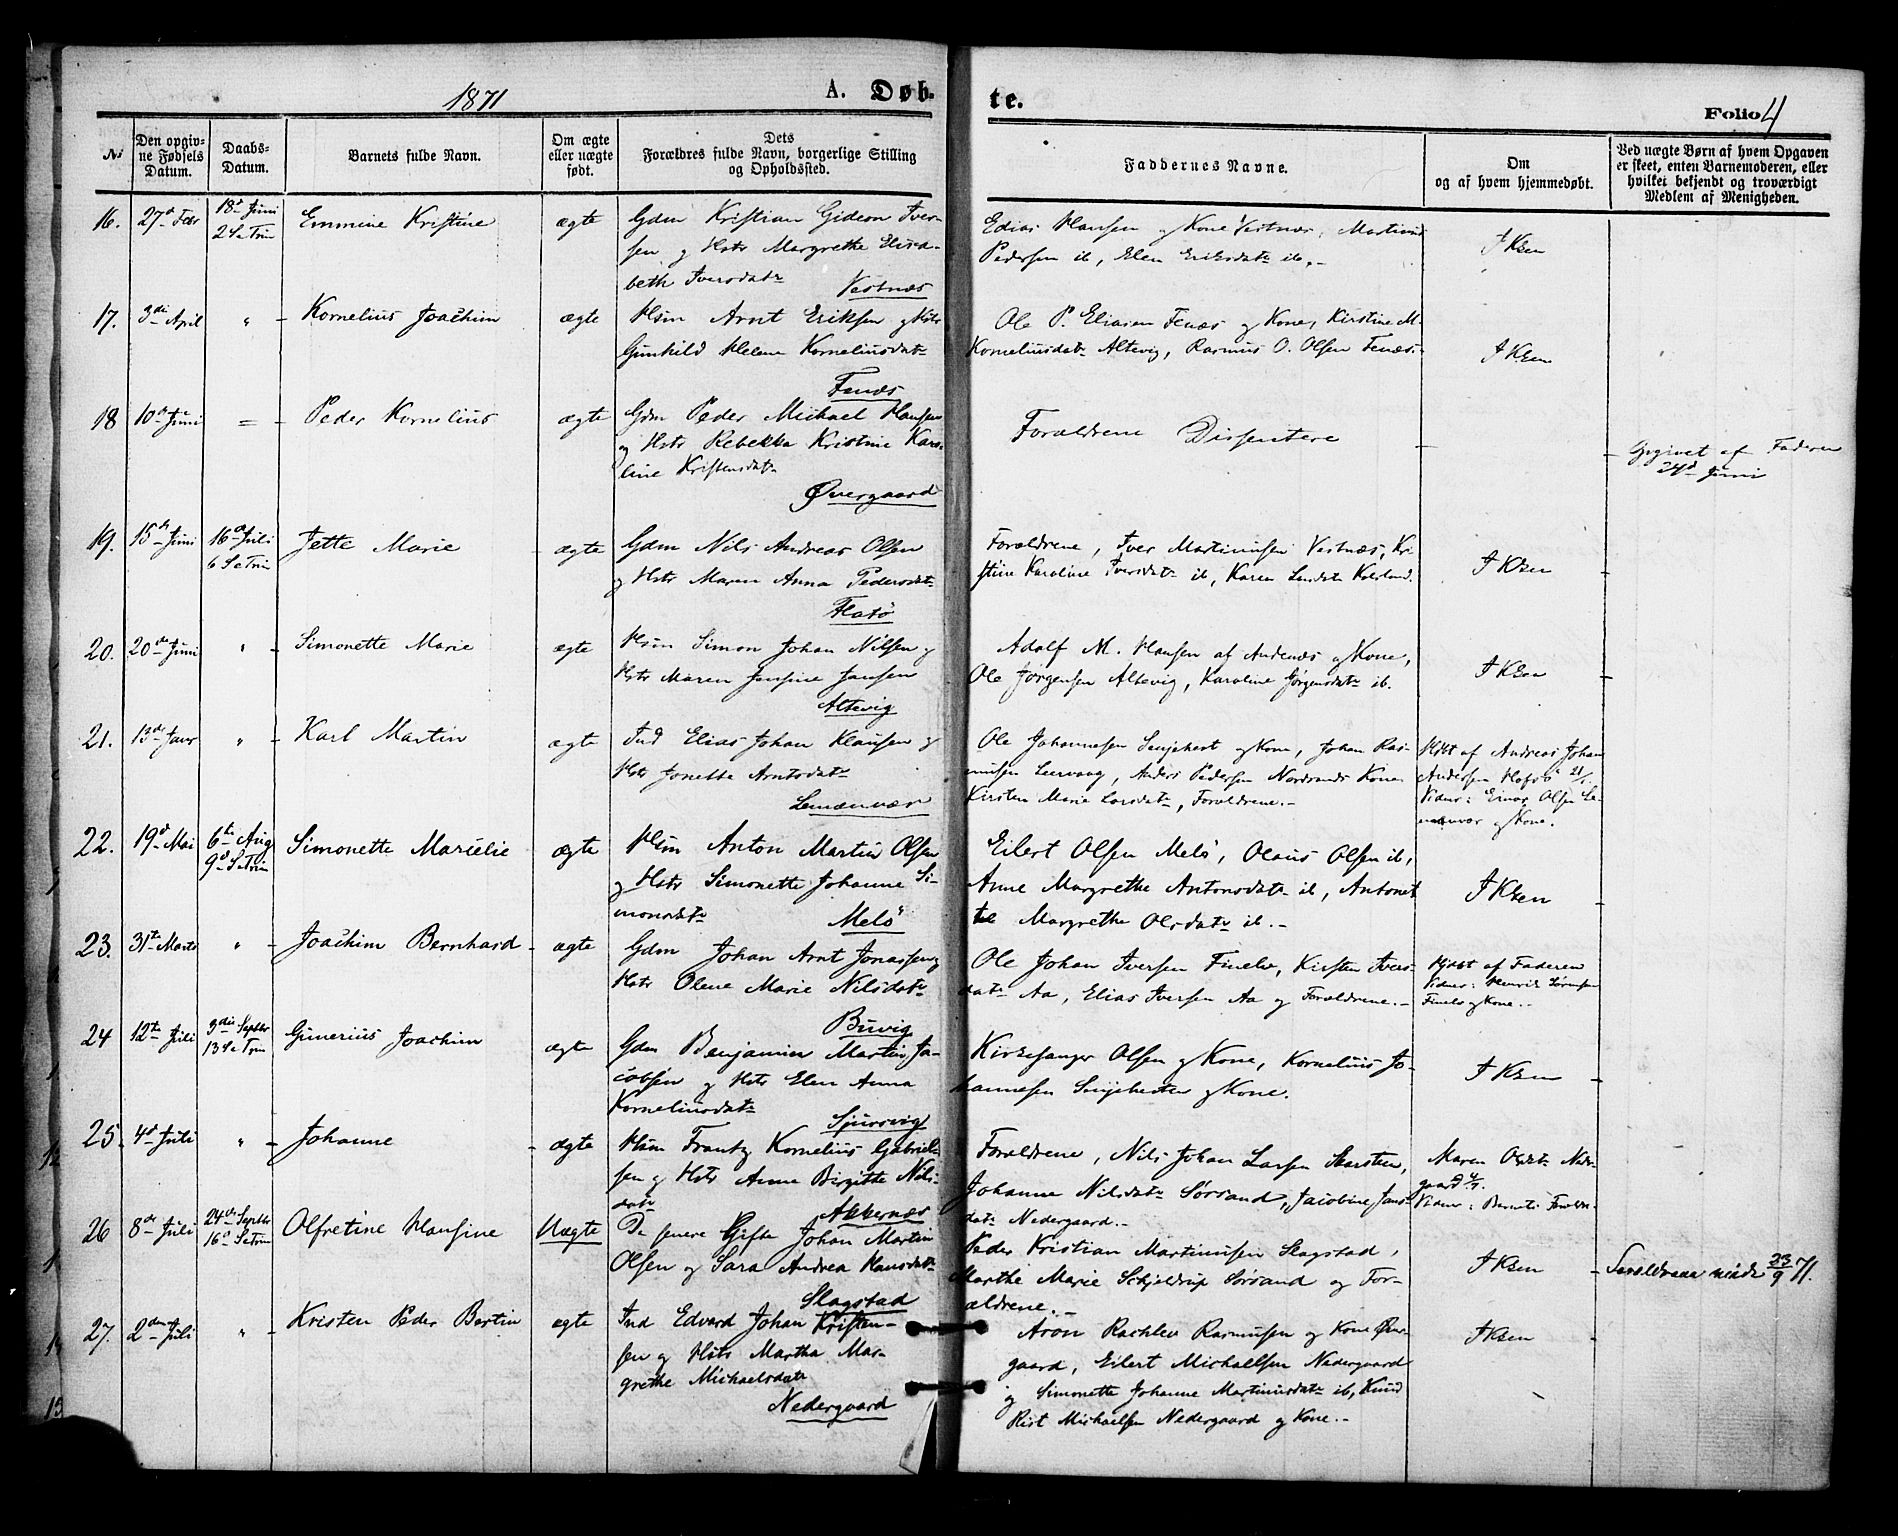 1871
A. Døb-
te.
Folio 4
No
Den opgiv-
ne Fødsels
Datum.
Daabs-
Datum.
Barnets fulde Navn.
Om ægte
eller uægte
født.
Dets
Forældres fulde Navn, borgerlige Stilling
og Opholdssted.
Faddernes Navne.
Om
og af hvem hjemmedøbt.
Ved uægte Børn af hvem Opgaven
er skeet, enten Barnemoderen, eller
hvilket bekjendt og troværdigt
Medlem af Menigheden.
16.
27d Febr
18d Juni
2 S e Trin
Emmine Kristine
ægte
Gdm Kristian Gideon Iver-
sen og Hstr Margrethe Elisa-
beth Iversdatr
Vestnæs
Edias Hansen og Kone Vestnæs, Martinus
Pedersen ib, Elen Eriksdatr ib.-
I Ksen
17.
3die April
"
Kornelius Joachim
ægte
Hsm Arnt Eriksen og Hstr
Gunhild Helene Korneliusdatr
Finnæs
Ole P. Eliasen Finæs og Kone, Kirstine M.
Korneliusdatr Altevig, Rasmus O. Olsen Finæs.-
I Ksen
18
10de Juni
=
Peder Kornelius
ægte
Gdm Peder Michael Hansen
og Hstr Rebekka Kristine Karo-
line Kristensdatr
Øvergaard
Forældrene Dissentere
Opgivet af Faderen
24d Juni
19.
15de Juni
16d Juli
6 S e Trin
Jette Marie
ægte
Gdm Nils Andreas Olsen
og Hstr Maren Anna Pedersdatr
Flatø
Forældrene, Iver Martinusen Vestnæs, Kri-
stine Karoline Iversdatr ib, Karen Larsdatr
I Ksen
20.
20de Juni
"
Simonette Marie
ægte
Hsm Simon Johan Nilsen og
Hstr Maren Jensine Jansen
Altevig
Adolf M. Hansen af Andenæs og Kone,
Ole Jørgensen Altevig, Karoline Jørgensdatr ib.
I Ksen
21.
13de Janr
"
Karl Martin
ægte
Ind Elias Johan Klausen og
Hstr Jonetta Arntsdatr
Lemænvær
Ole Johannesen Senjehest og Kone, Johan Ras-
musen Leervaag, Anders Pedersen Nordsands Kone
Kirsten Marie Larsdatr, Forældrene.-
Hdbt af Andreas Johan
Andersen Hofsø 21/1.
Vidner: Einar Olsen Le-
mænvær og Kone.
22.
19d Mai
6te Aug
9d S e Trin
Simonette Marielie
ægte
Hsm Anton Martin Olsen
og Hstr Simonette Johanne Si-
monsdatr
Melø
Eilert Olsen Melø, Olaus Olsen ib,
Anne Margrethe Antonsdatr ib, Antonet
te Margrethe Olsdatr ib.-
I Ksen
23.
31te Marts
"
Joachim Bernhard
ægte
Gdm Johan Arnt Jonassen og
Hstr Olene Marie Nilsdatr
Buvig
Ole Johan Iversen Finelv, Kirsten Ivers-
datr Aa, Elias Iversen Aa og Forældrene.-
Hjdbt af Faderen
Vidner: Henrik Sørensen
Finelv og Kone.-
24
12te Juli
3die Septbr
13 S e Trin
Gunerius Joachim
ægte
Gdm Benjamin Martin Ja-
cobsen og Hstr Elen Anna
Korneliusdatr
Sjursvig
Kirkesanger Olsen og Kone, Kornelius Jo-
hannesen Senjehesten og Kone.
I Ksen
25.
4d Juli
"
Johanne
ægte
Hsm Frantz Kornelius Gabriel-
sen og Hstr Anne Birgitte Nils-
datr
Akkernæs
Forældrene, Nils Johan Larsen
Johanne Nilsdatr Sørsand, Jacobine Jans-
datr Nedergaard.-
Maren Olsdatr Neder-
gaard
Vidner: Barnets Foreldre.
26
8de Juli
24de Septbr
16d S e Trin
Olfretine Hansine
Uægte
De senere Gifte Johan Martin
Olsen og Sara Andrea Hansdatr
Slagstad
Peder Kristian Martinusen Slagstad,
Marthe Marie Schjeldrup Sørsand og For-
ældrene.-
I Ksen
Forældrene 23/9 71.
27.
2den Juli
"
Kristen Peder Bertin
ægte
Ind Edvard Johan Kristen-
sen og Hstr Martha Mar-
grethe Michaelsdatr
Nedergaard
Aron Rachlev Rasmusen og Kone Øver-
gaard, Eilert Michaelsen Nedergaard
og Simonette Johanne Martinusdatr ib, Knud
Rist Michaelsen Nedergaard og Kone.-
I Ksen